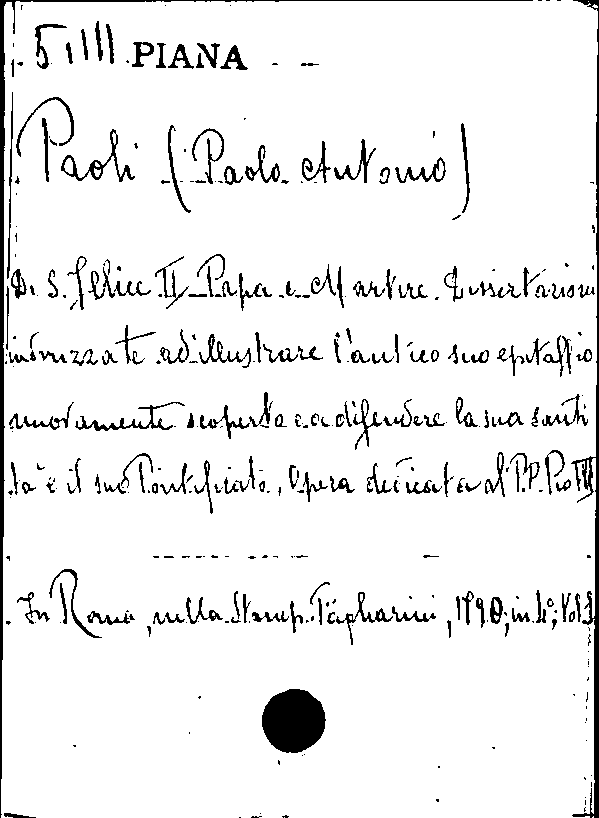 5. IIII PIANA
Paoli (Paolo Antonio)
Di S. Felice II Papa e Martire. Dissertazioni
indrizzate ad illustrare l'antico suo epitaffio
nuovamente scoperto e a difendere la sua santi
tà e il suo Pontificato. Opera dedicata al P.P. Pio VI
In Roma, nella Stamp. Pagliarini, 1790, in 4°; Vol.